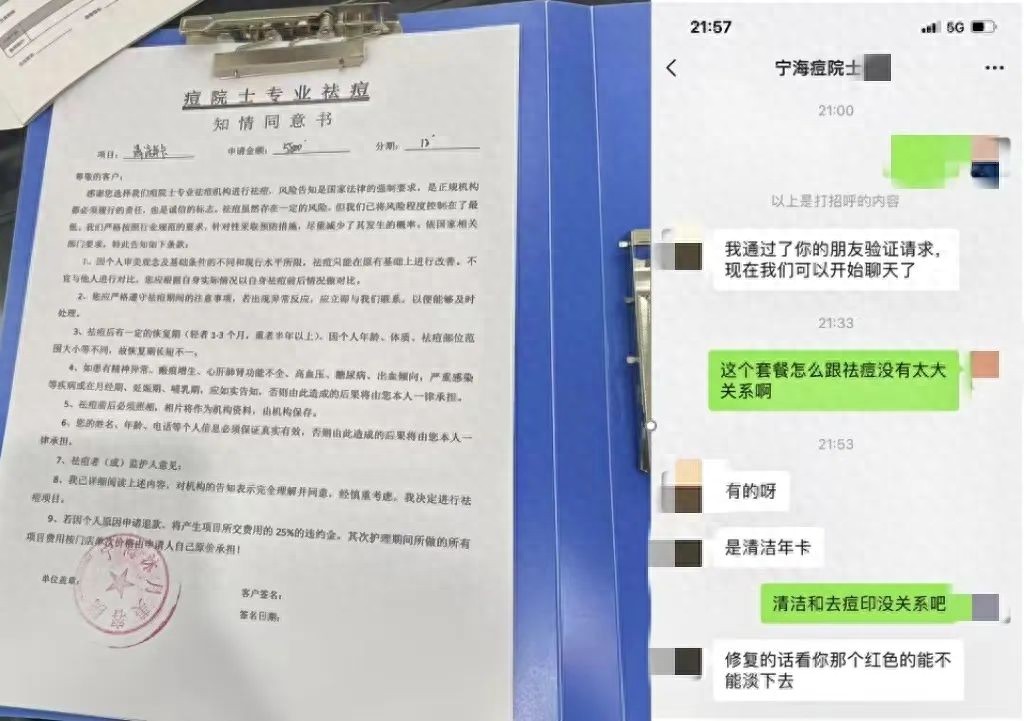 痘院士专业祛痘
知情同意书
项目： 清洁年卡 申请金额： 5800 分期： 12
尊敬的客户：
感谢您选择我们痘院士专业祛痘机构进行祛痘。风险告知是国家法律的强制要求，是正规机构
都必须履行的责任，也是诚信的标志。祛痘虽然存在一定的风险，但我们已将风险程度控制在了最
低。我们严格按照行业规范的要求，针对性采取预防措施，尽能减少了其发生的概率。依国家相关
部门要求，特此告知如下条款：
1、因个人审美观念及基础条件的不同和现行水平所限，祛痘只能在原有基础上进行改善。不
宜与他人进行对比。您应根据自身实际情况以自身祛痘前后情况做对比。
2、您应严格遵守祛痘期间的注意事项，若出现异常反应，应立即与我们联系。以便能够及时
处理。
3、祛痘后有一定的恢复期（轻者1-3个月，重者半年以上）。因个人年龄、体质、祛痘部位范
围大小等不同，故恢复期长短不一。
4、如患有精神异常、瘢痕增生、心肝肺肾功能不全、高血压、糖尿病、出血倾向，严重感染
等疾病或在月经期、妊娠期、哺乳期，应如实告知，否则由此造成的后果将由您本人一律承担。
5、祛痘前后必须照相，相片将作为机构资料，由机构保存。
6、您的姓名、年龄、电话等个人信息必须保证真实有效，否则由此造成的后果将由您本人一
律承担。
7、祛痘者（或）监护人意见：
8、我已详细阅读上述内容，对机构的告知表示完全理解并同意，经慎重考虑。我决定进行祛
痘项目。
9、若因个人原因申请退款，将产生项目所交费用的25%的违约金。其次护理期间所做的所有
项目费用按门店单次价格由申请人自己原价承担！
单位盖章：
客户签名：
签名日期：
21:57
5G
宁海痘院士
21:00
以上是打招呼的内容
我通过了你的朋友验证请求，
现在我们可以开始聊天了
21:33
这个套餐怎么跟祛痘没有太大
关系啊
21:53
有的呀
是清洁年卡
清洁和去痘印没关系吧
修复的话看你那个红色的能不
能淡下去